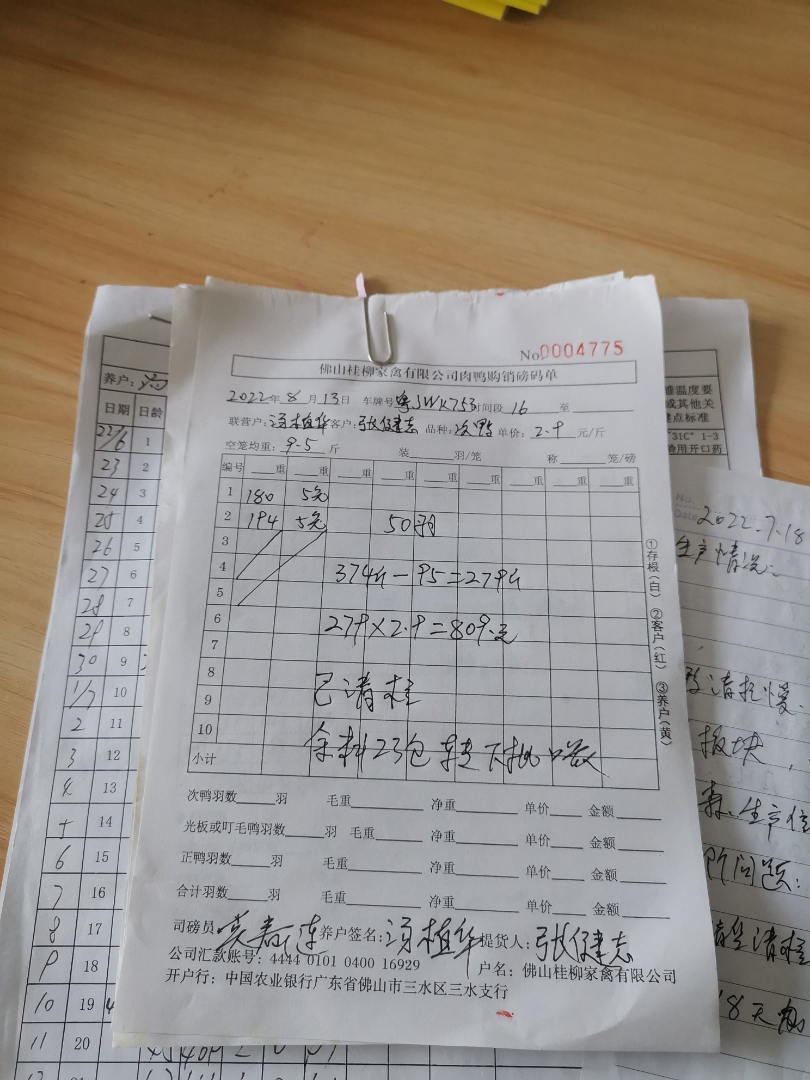 No0004775
佛山桂柳家禽有限公司肉鸭购销磅码单
2022年8月13日 车牌号粤JWK753时间段16至
联营户:汤植华客户:张健志 品种:次鸭 单价:2.9元/斤
空笼均重:9.5斤 装 羽/笼 称 笼/磅
编号 重 重 重 重 重 重 重 重
1 180 5元
2 194 5元 50羽
3
4 374斤-95=279斤
5
6 279×2.9=809.元
7
8 已清栏
9
10 余料23包 转下批口数
小计
①存根(白) ②客户(红) ③养户(黄)
次鸭羽数 羽 毛重 净重 单价 金额
光板或叮毛鸭羽数 羽 毛重 净重 单价 金额
正鸭羽数 羽 毛重 净重 单价 金额
合计羽数 羽 毛重 净重 单价 金额
司磅员 养户签名:汤植华 提货人:张健志
公司汇款账号:4444 0101 0400 16929 户名:佛山桂柳家禽有限公司
开户行:中国农业银行广东省佛山市三水区三水支行
养户:汤
日期 日龄
22/6 1
23 2
24 3
25 4
26 5
27 6
28 7
29 8
30 9
1/7 10
2 11
3 12
4 13
5 14
6 15
7 16
8 17
9 18
10 19
11 20
温度要
或其他关
键点标准
"31C" 1-3
使用开口药
No.
Date 2022.7.18
生产情况:
板块,
所问题:
18天